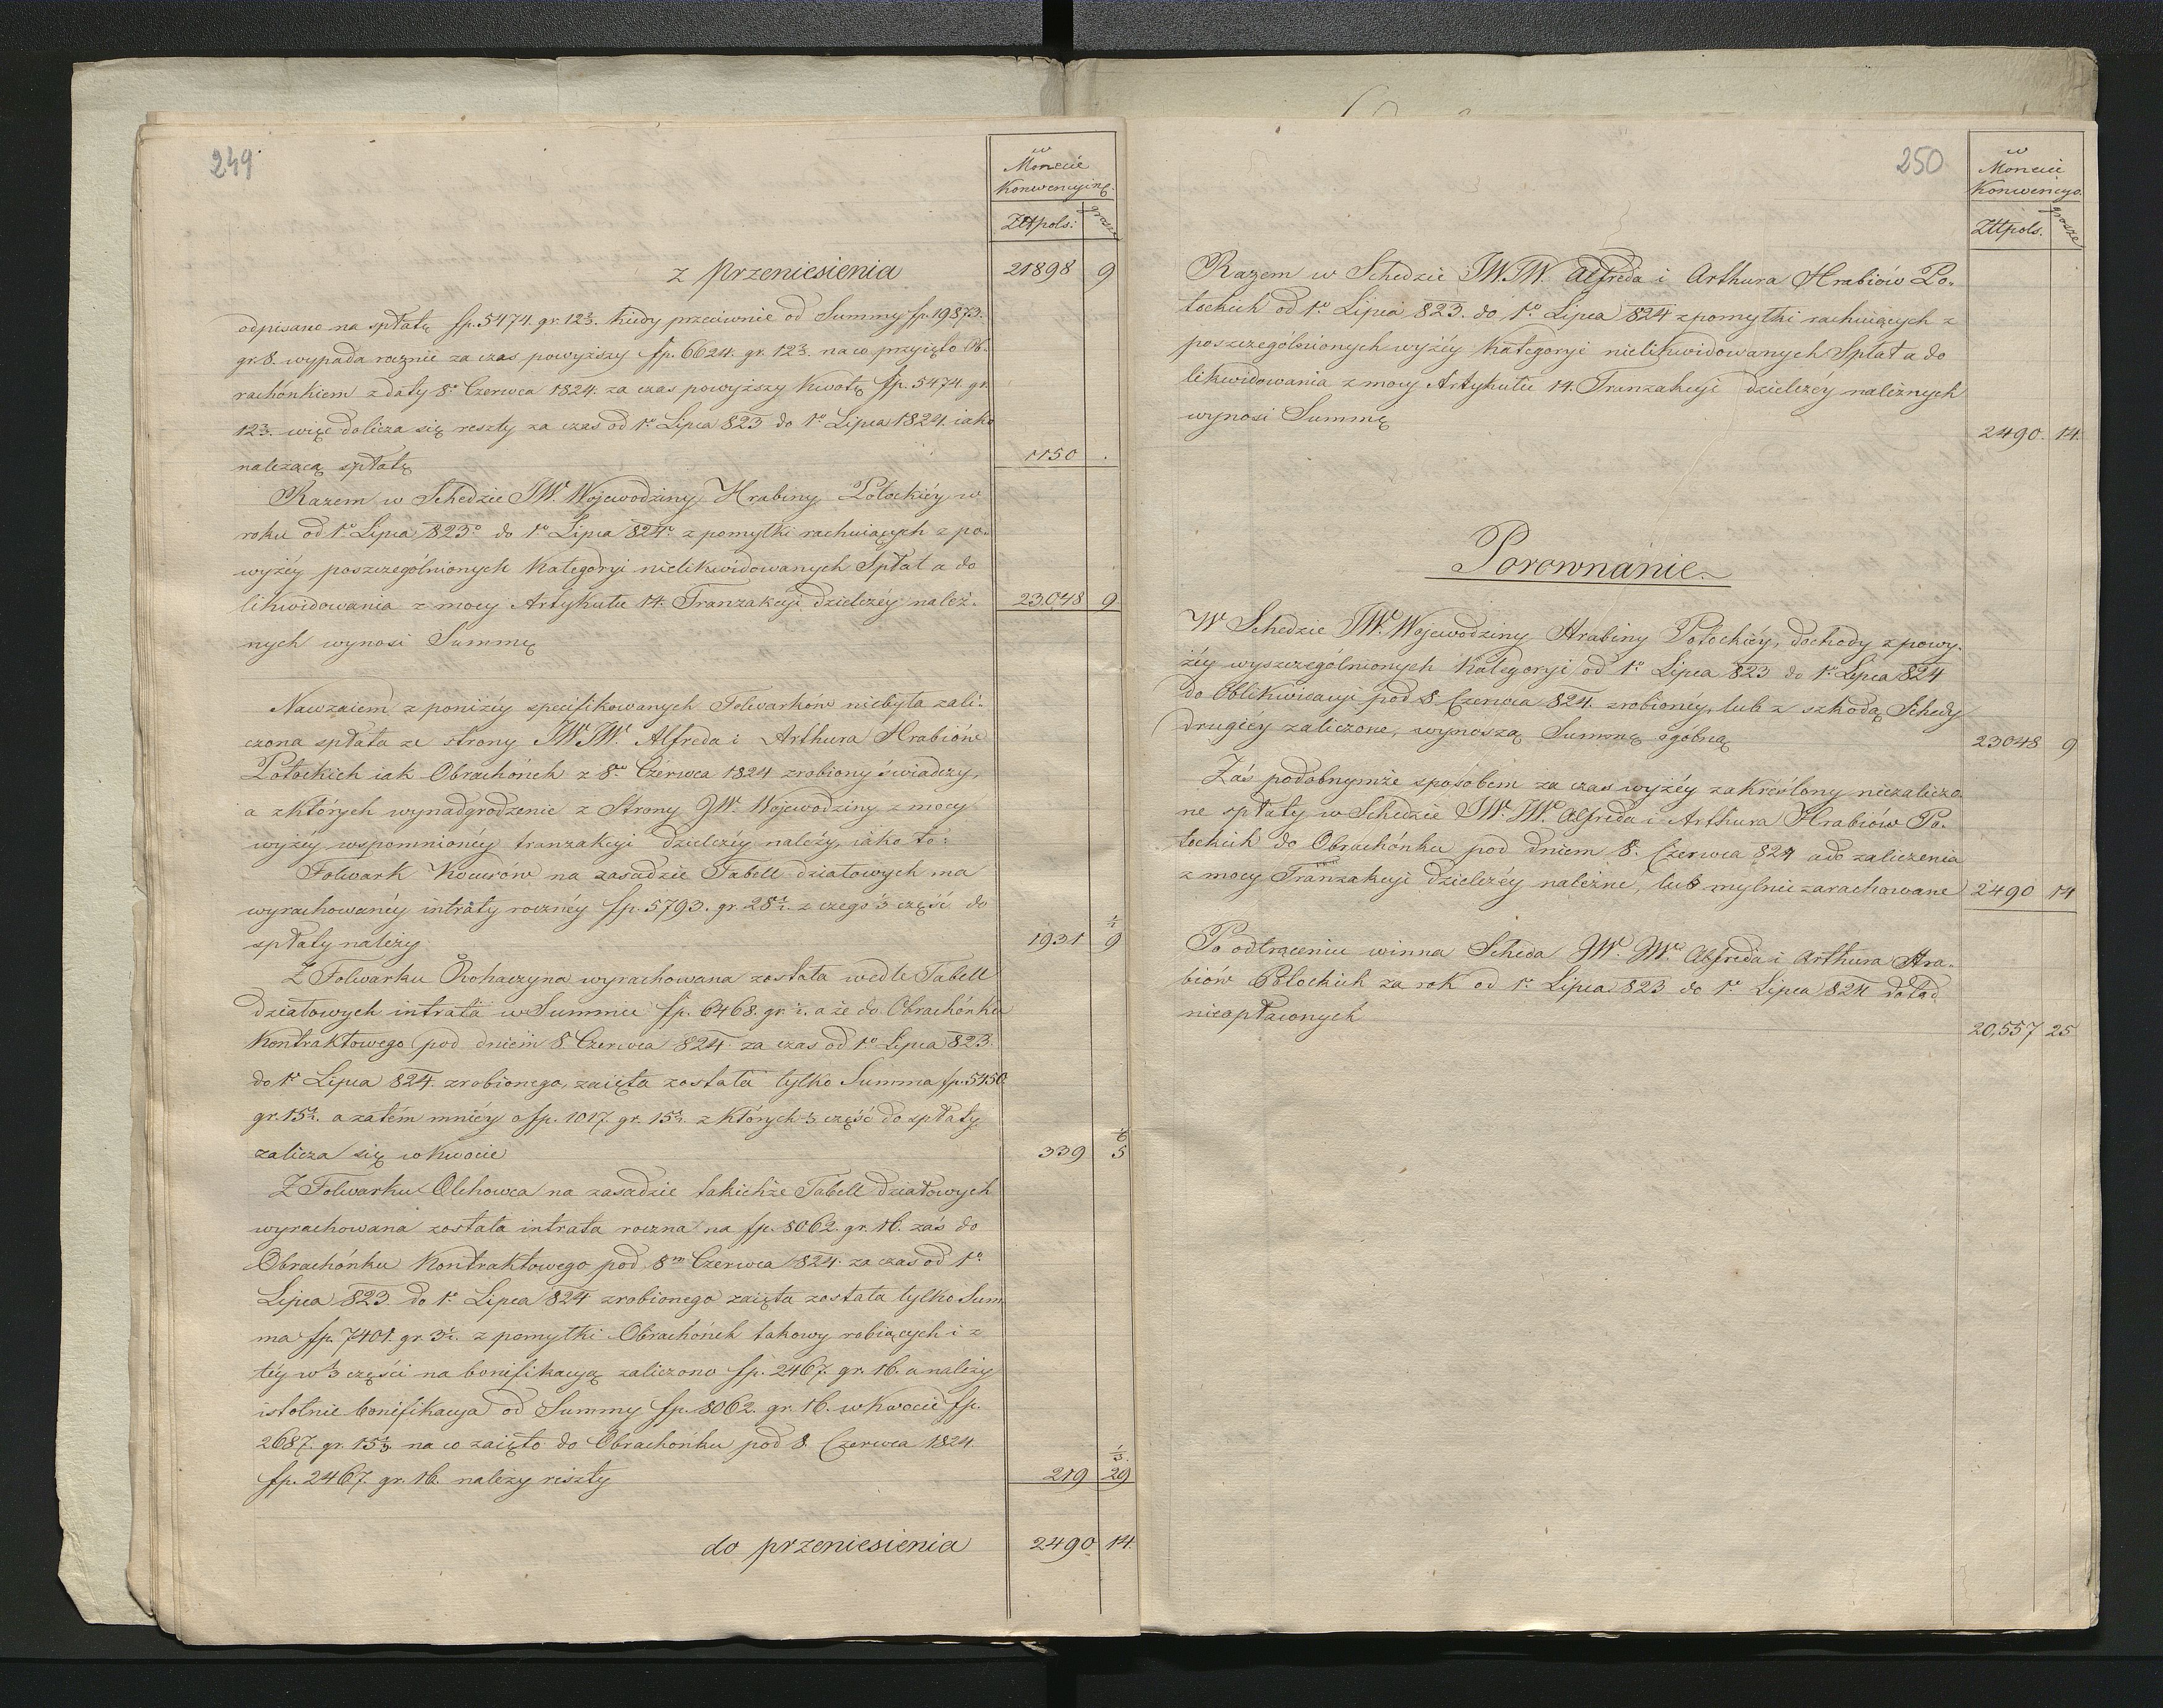 249
w
Monecie
Konwencyinę.
Złłpols: grosze
z przeniesienia 21898 9
odpisano na spłatę fp. 5474. gr. 12⅔. kiedy przeciwnie od Summy fp. 19873.
gr. 8. wypada rocznie za czas powyższy fp. 6624. gr. 12⅔. na co przyięto Ob-
rachónkiem z daty 8º Czerwca 1824. za czas powyższy Kwotę fp. 5474. gr.
12⅔. więc dolicza się reszty za czas od 1º Lipca 823 do 1º Lipca 1824. iako
należącą spłatę 1150 .
Razem w Schedzie JW. Wojewodziny Hrabiny Potockiéy w
roku od 1º Lipca 823º do 1º Lipca 824º z pomyłki rachuiących z po-
wyżéy poszczególnionych Kategoryi nielikwidowanych Spłat a do
likwidowania z mocy Artykułu 14. Tranzakcyi dzielczéy należ- 23.048 9
nych wynosi Summę
Nawzaiem z poniżéy specifikowanych Folwarków niebyła zali-
czona spłata ze strony JW. JW. Alfreda i Arthura Hrabiów
Potockich iak Obrachónek z 8º Czerwca 1824 zrobiony świadczy,
a z których wynadgrodzenie z Strony JW. Wojewodziny z mocy
wyżéy wspomnionéy tranzakcyi dzielczéy należy, iako to:
Folwark Kocurow na zasadzie Tabell działowych ma
wyrachowanéy intraty rocznéy fp. 5793. gr. 28½. z czego ⅓ część do
spłaty należy 1931 9½
Z Folwarku Rohaczyna wyrachowana została wedle Tabell
działowych intrata w Summie fp. 6468. gr. ½. a że do Obrachónku
Kontraktowego pod dniem 8 Czerwca 824. za czas od 1º Lipca 823.
do 1º Lipca 824 zrobionego, zaięta została tylko Summa fp. 5450.
gr. 15½. a zatém mniéy o fp. 1017. gr. 15½. z których ⅓ część do spłaty
zalicza się w kwocie 339 5⅙
Z Folwarku Olchowca na zasadzie takichże Tabell działowych
wyrachowana została intrata roczna na fp. 8062. gr. 16. zaś do
Obrachónku Kontraktowego pod 8m Czerwca 824. za czas od 1º
Lipca 823. do 1º Lipca 824 zrobionego zaięta została tylko Sum-
ma fp. 7401. gr. 3½. z pomyłki Obrachónek takowy robiących i z
téy w ⅓ części na bonifikacyą zaliczono fp. 2467. gr. 16. a należy
istotnie bonifikacya od Summy fp. 8062. gr. 16. w kwocie fp.
2687. gr. 15⅓. na co zaięto do Obrachónku pod 8 Czerwca 1824.
fp. 2467. gr. 16. należy reszty 219 29⅓
do przeniesienia 2490 14.
250
w
Monecie
Konwencyo.
Złłpols. grosze
Razem w Schedzie JW. JW. Alfreda i Arthura Hrabiów Po-
tockich od 1º Lipca 823. do 1º Lipca 824 z pomyłki rachuiących z
poszczególnionych wyżéy kategoryi nielikwidowanych Spłat a do
likwidowania z mocy Artykułu 14. Tranzakcyi dzielczéy należnych
wynosi Summę 2490. 14.
Porownanie
W Schedzie JW. Wojewodziny Hrabiny Potockiéy, dochody z powy-
żéy wyszczególnionych Kategoryi od 1º Lipca 823 do 1º Lipca 824
do Oblikwidacyi pod 8 Czerwca 824. zrobionéy, lub z szkodą Schedy
drugiéy zaliczone, wynoszą Summę ogólną 23048 9
Zaś podobnymże sposobem za czas wyżéy zakréślony niezaliczo-
ne spłaty w Schedzie JW. JW. Alfreda i Arthura Hrabiów Po-
tockich do Obrachónku pod dniem 8. Czerwca 824 a do zaliczenia
z mocy Tranzakcyi dzielczéy należne, lub mylnie zarachowane 2490 14
Po odtrąceniu winna Scheda JW. JW. Alfreda i Arthura Hra-
biów Potockich za rok od 1º Lipca 823 do 1º Lipca 824 dotąd
nieopłaconych 20,557 25